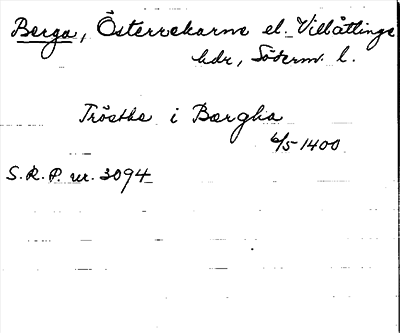 Berga, Österrekarne el. Villåttinge
hdr, Söderm. l.
Tröstke i Bærgha
6/5 1400
S.R.P. nr. 3094